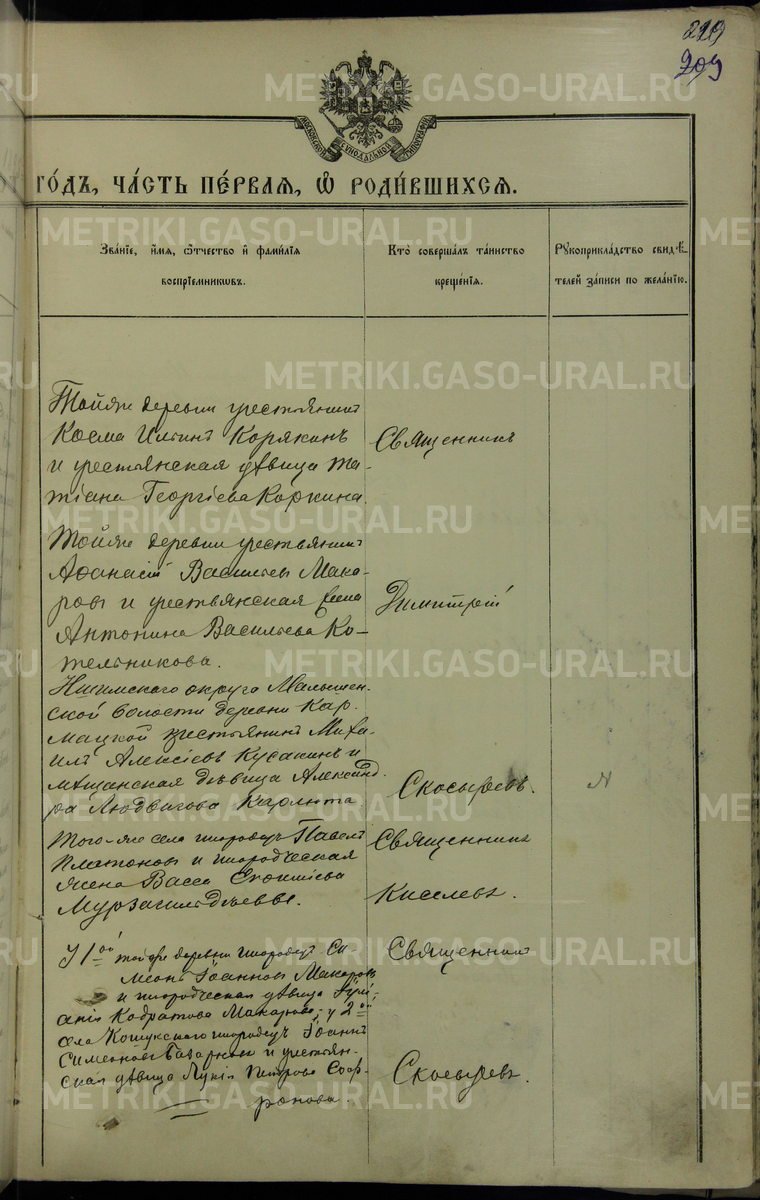 219
209
МОСКОВСКОЙ СУНОДАЛЬНОЙ ТИПОГРАФІИ
го́дъ, ча́сть пе́рваѧ, ѡ҆ роди́вшихсѧ.
Зва́нїе, и҆́мѧ, ѻ҆́тчество и҆ фами́лїѧ
воспрїе́мникѡвъ.
Кто̀ соверша́лъ та́инство
креще́нїѧ.
Рꙋкоприкла́дство свидѣ́-
телей за́писи по жела́нїю.
Тойже деревни крестьянинъ
Косма Ильинъ Корякинъ
и крестьянская дѣвица Та-
тіана Георгіева Коркина.
Священникъ
Тойже деревни крестьянинъ
Афанасій Васильевъ Мака-
ровъ и крестьянская
Антонина Васильева Ко-
тельникова.
Димитрій
Ишимскаго округа Малышен-
ской волости деревни Кар-
мацкой крестьянинъ Миха-
илъ Алексіевъ Кусакинъ и
мѣщанская дѣвица Александ-
ра Людвигова
Скосыревъ.
Того-же села инородецъ Павелъ
Платоновъ и инородческая
жена Васса
Священникъ
Киселевъ.
У 1ой тойже деревни инородецъ Си-
меонъ Іоанновъ Макаровъ
и инородческая дѣвица
Кодратова Макарова; у 2ой
села Кошукскаго инородецъ Іоаннъ
Симеоновъ и крестьян-
ская дѣвица Лукія Петрова Соф-
ронова.
Священникъ
Скосыревъ.
METRIKI.GASO-URAL.RU